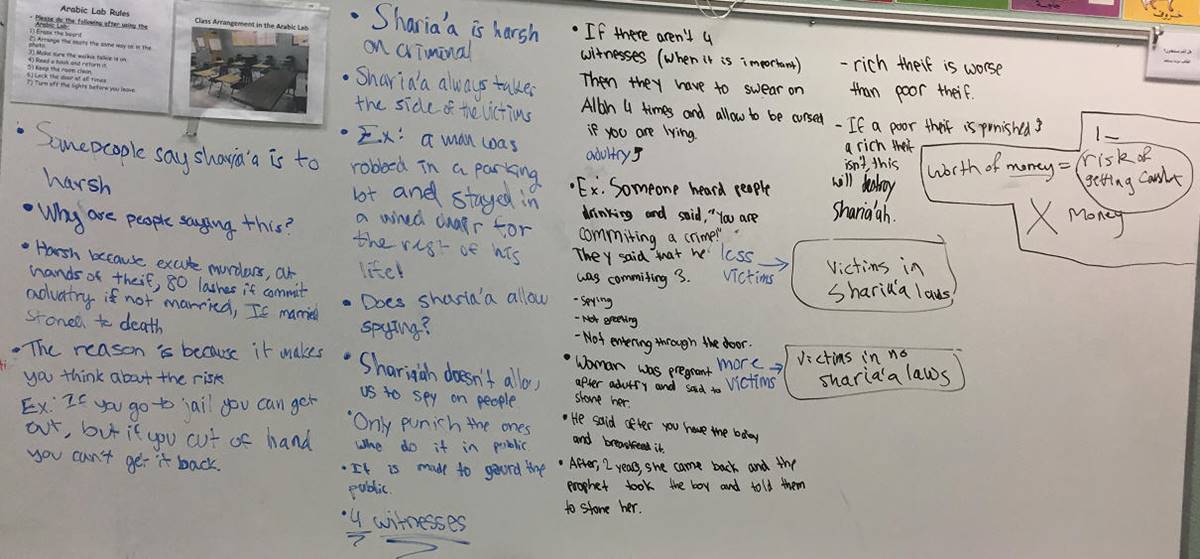 Arabic Lab Rules
- Please do the following after using the
Arabic Lab:
1) Erase the board
2) Arrange the seats the same way as in the
photo.
3) Make sure the walkie talkie is on
4) Read a book and return it
5) Keep the room clean
6) Lock the door at all times
7) Turn off the lights before you leave
Class Arrangement in the Arabic Lab
• Some people say sharia'a is to
harsh
• Why are people saying this?
• Harsh because excute murdars, cut
hands of theif, 80 lashes if commit
aduatry if not married, If married
stoned to death
• The reason is because it makes
you think about the risk
Ex: If you go to jail you can get
out, but if you cut of hand
you can't get it back.
• Sharia'a is harsh
on criminal
• Sharia'a always takes
the side of the victims
• Ex: a man was
robbed in a parking
lot and stayed in
a chair for
the rest of his
life!
• Does sharia'a allow
spying?
• Shariah doesn't allow
us to spy on people
• Only punish the ones
who do it in public
• It is made to gaurd the
public.
• 4 witnesses
• If there aren't 4
witnesses (when it is important)
Then they have to swear on
Allah 4 times and allow to be cursed
if you are lying.
adultry
• Ex. Someone heard people
drinking and said, "You are
commiting a crime!"
They said that he
was commiting 3.
- Spying
- Not greeting
- Not entering through the door.
• Woman was pregnant
after adultry and said to
stone her.
• He said after you have the baby
and breastfeed it.
• After, 2 years, she came back and the
prophet took the boy and told them
to stone her.
less →
victims
victims in
Sharia'a laws
more →
victims
victims in no
sharia'a laws
- rich theif is worse
than poor theif.
- If a poor theif is punished &
a rich theif
isn't, this
will destroy
Sharia'ah.
1
worth of money = risk of
getting caught
X Money